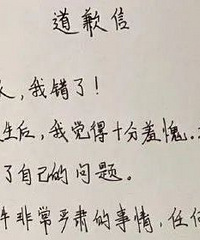 道歉信
，我错了！
生后，我觉得十分羞愧.
了自己的问题。
件非常严肃的事情，任何